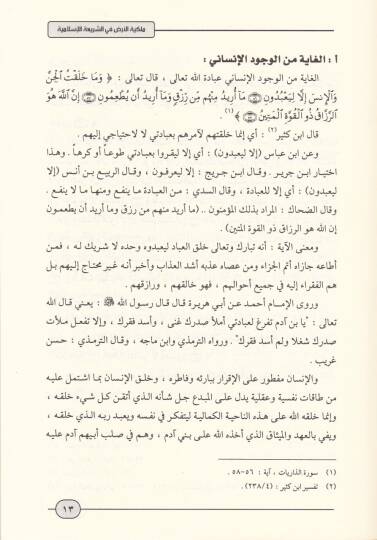 ملكية الارض في الشريعة الإسلامية
أ : الغاية من الوجود الإنساني :
الغاية من الوجود الإنساني عبادة الله تعالى ، قال تعالى : ﴿ وَمَا خَلَقْتُ الْجِنَّ
وَالْإِنسَ إِلَّا لِيَعْبُدُونِ ۝ مَا أُرِيدُ مِنْهُم مِّن رِّزْقٍ وَمَا أُرِيدُ أَن يُطْعِمُونِ ۝ إِنَّ اللَّهَ هُوَ
الرَّزَّاقُ ذُو الْقُوَّةِ الْمَتِينُ ۝ ﴾ (١) .
قال ابن كثير (٢) : أي إنما خلقتهم لآمرهم بعبادتي لا لاحتياجي إليهم .
وعن ابن عباس (إلا ليعبدون) : أي إلا ليقروا بعبادتي طوعاً أو كرهاً . وهذا
اختيار ابن جرير . وقال ابن جريج : إلا ليعرفون ، وقال الربيع بن أنس (إلا
ليعبدون) : أي إلا للعبادة ، وقال السدي : من العبادة ما ينفع ومنها ما لا ينفع .
وقال الضحاك : المراد بذلك المؤمنون .. (ما أريد منهم من رزق وما أريد أن يطعمون
إن الله هو الرزاق ذو القوة المتين) .
ومعنى الآية : أنه تبارك وتعالى خلق العباد ليعبدوه وحده لا شريك له ، فمن
أطاعه جازاه أتم الجزاء ومن عصاه عذبه أشد العذاب وأخبر أنه غير محتاج إليهم بل
هم الفقراء إليه في جميع أحوالهم ، فهو خالقهم ، ورازقهم .
وروى الإمام أحمد عن أبي هريرة قال قال رسول الله ﷺ : يعني قال الله
تعالى : "يا بن آدم تفرغ لعبادتي أملأ صدرك غنى ، وأسد فقرك ، وإلا تفعل ملأت
صدرك شغلا ولم أسد فقرك" . ورواه الترمذي وابن ماجه ، وقال الترمذي : حسن
غريب .
والإنسان مفطور على الإقرار ببارئه وفاطره ، وخلق الإنسان بما اشتمل عليه
من طاقات نفسية وعقلية يدل على المبدع جل شأنه الذي أتقن كل شيء خلقه ،
وإنما خلقه الله على هذه الناحية الكمالية ليتفكر في نفسه ويعبد ربه الذي خلقه ،
ويفي بالعهد والميثاق الذي أخذه الله على بني آدم ، وهم في صلب أبيهم آدم عليه
(١) سورة الذاريات ، آية : ٥٦-٥٨ .
(٢) تفسير ابن كثير : (٢٣٨/٤) .
١٣